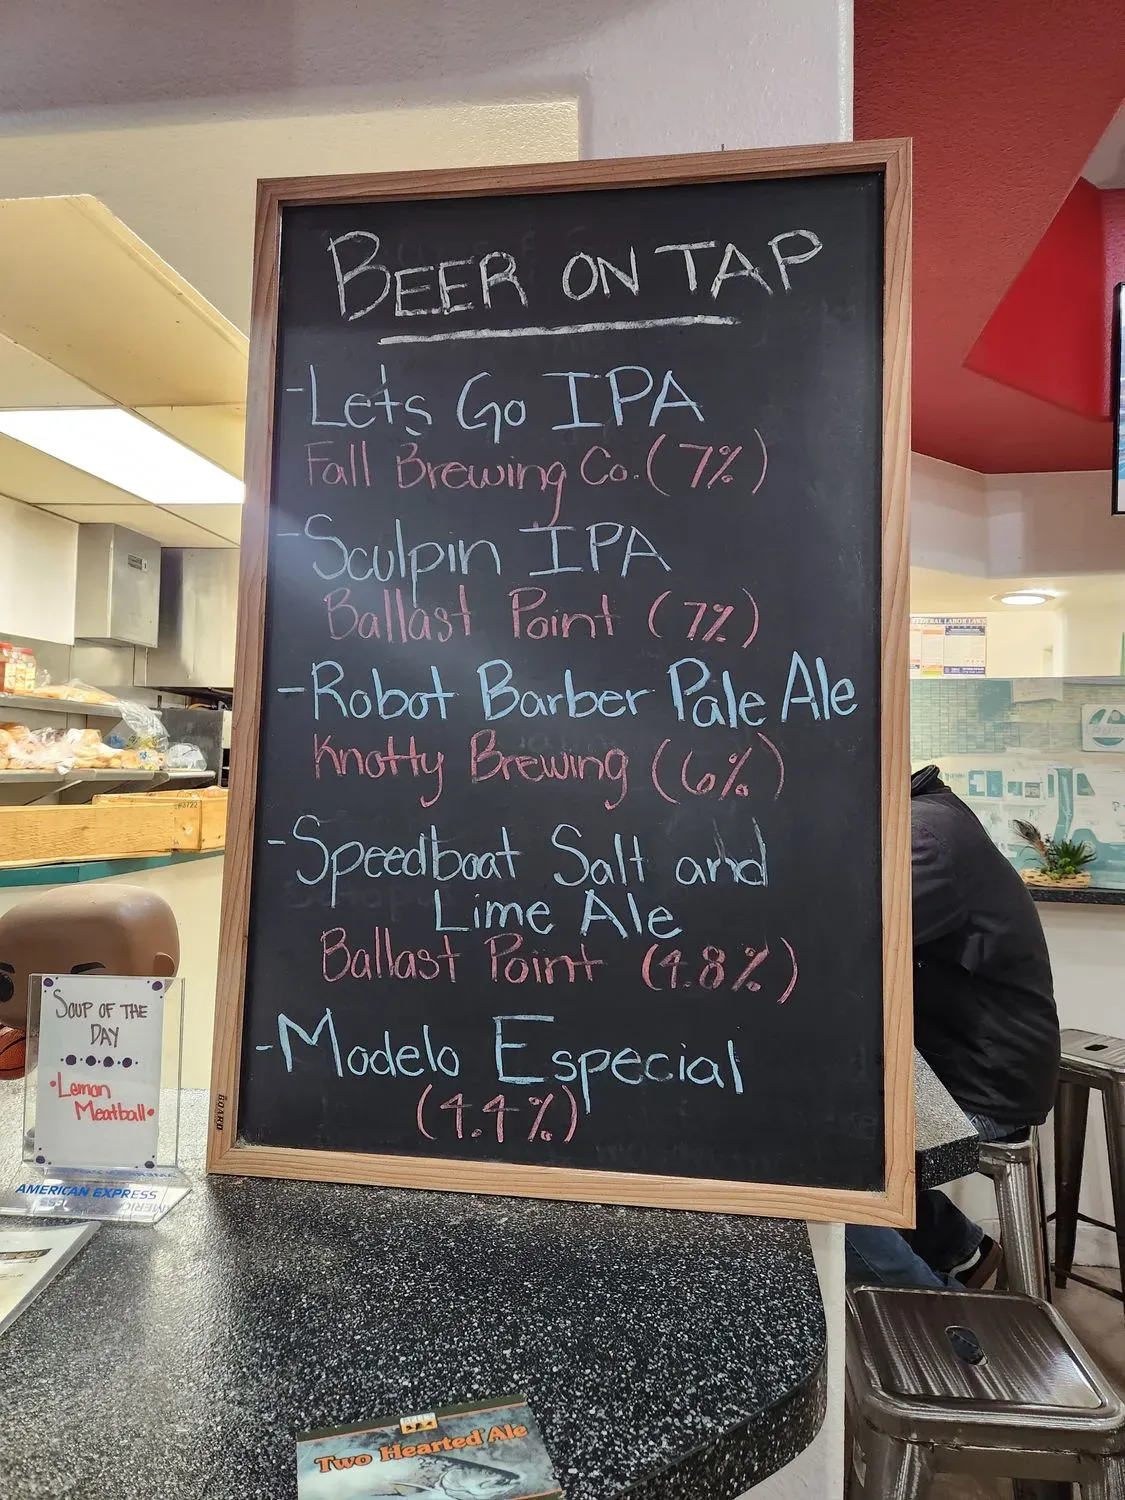 BEER ON TAP
-Lets Go IPA
Fall Brewing Co. (7%)
-Sculpin IPA
Ballast Point (7%)
-Robot Barber Pale Ale
Knotty Brewing (6%)
-Speedboat Salt and
Lime Ale
Ballast Point (4.8%)
-Modelo Especial
(4.4%)
BOARD
SOUP OF THE
DAY
•Lemon
Meatball•
AMERICAN EXPRESS
Two Hearted Ale
FEDERAL LABOR LAWS